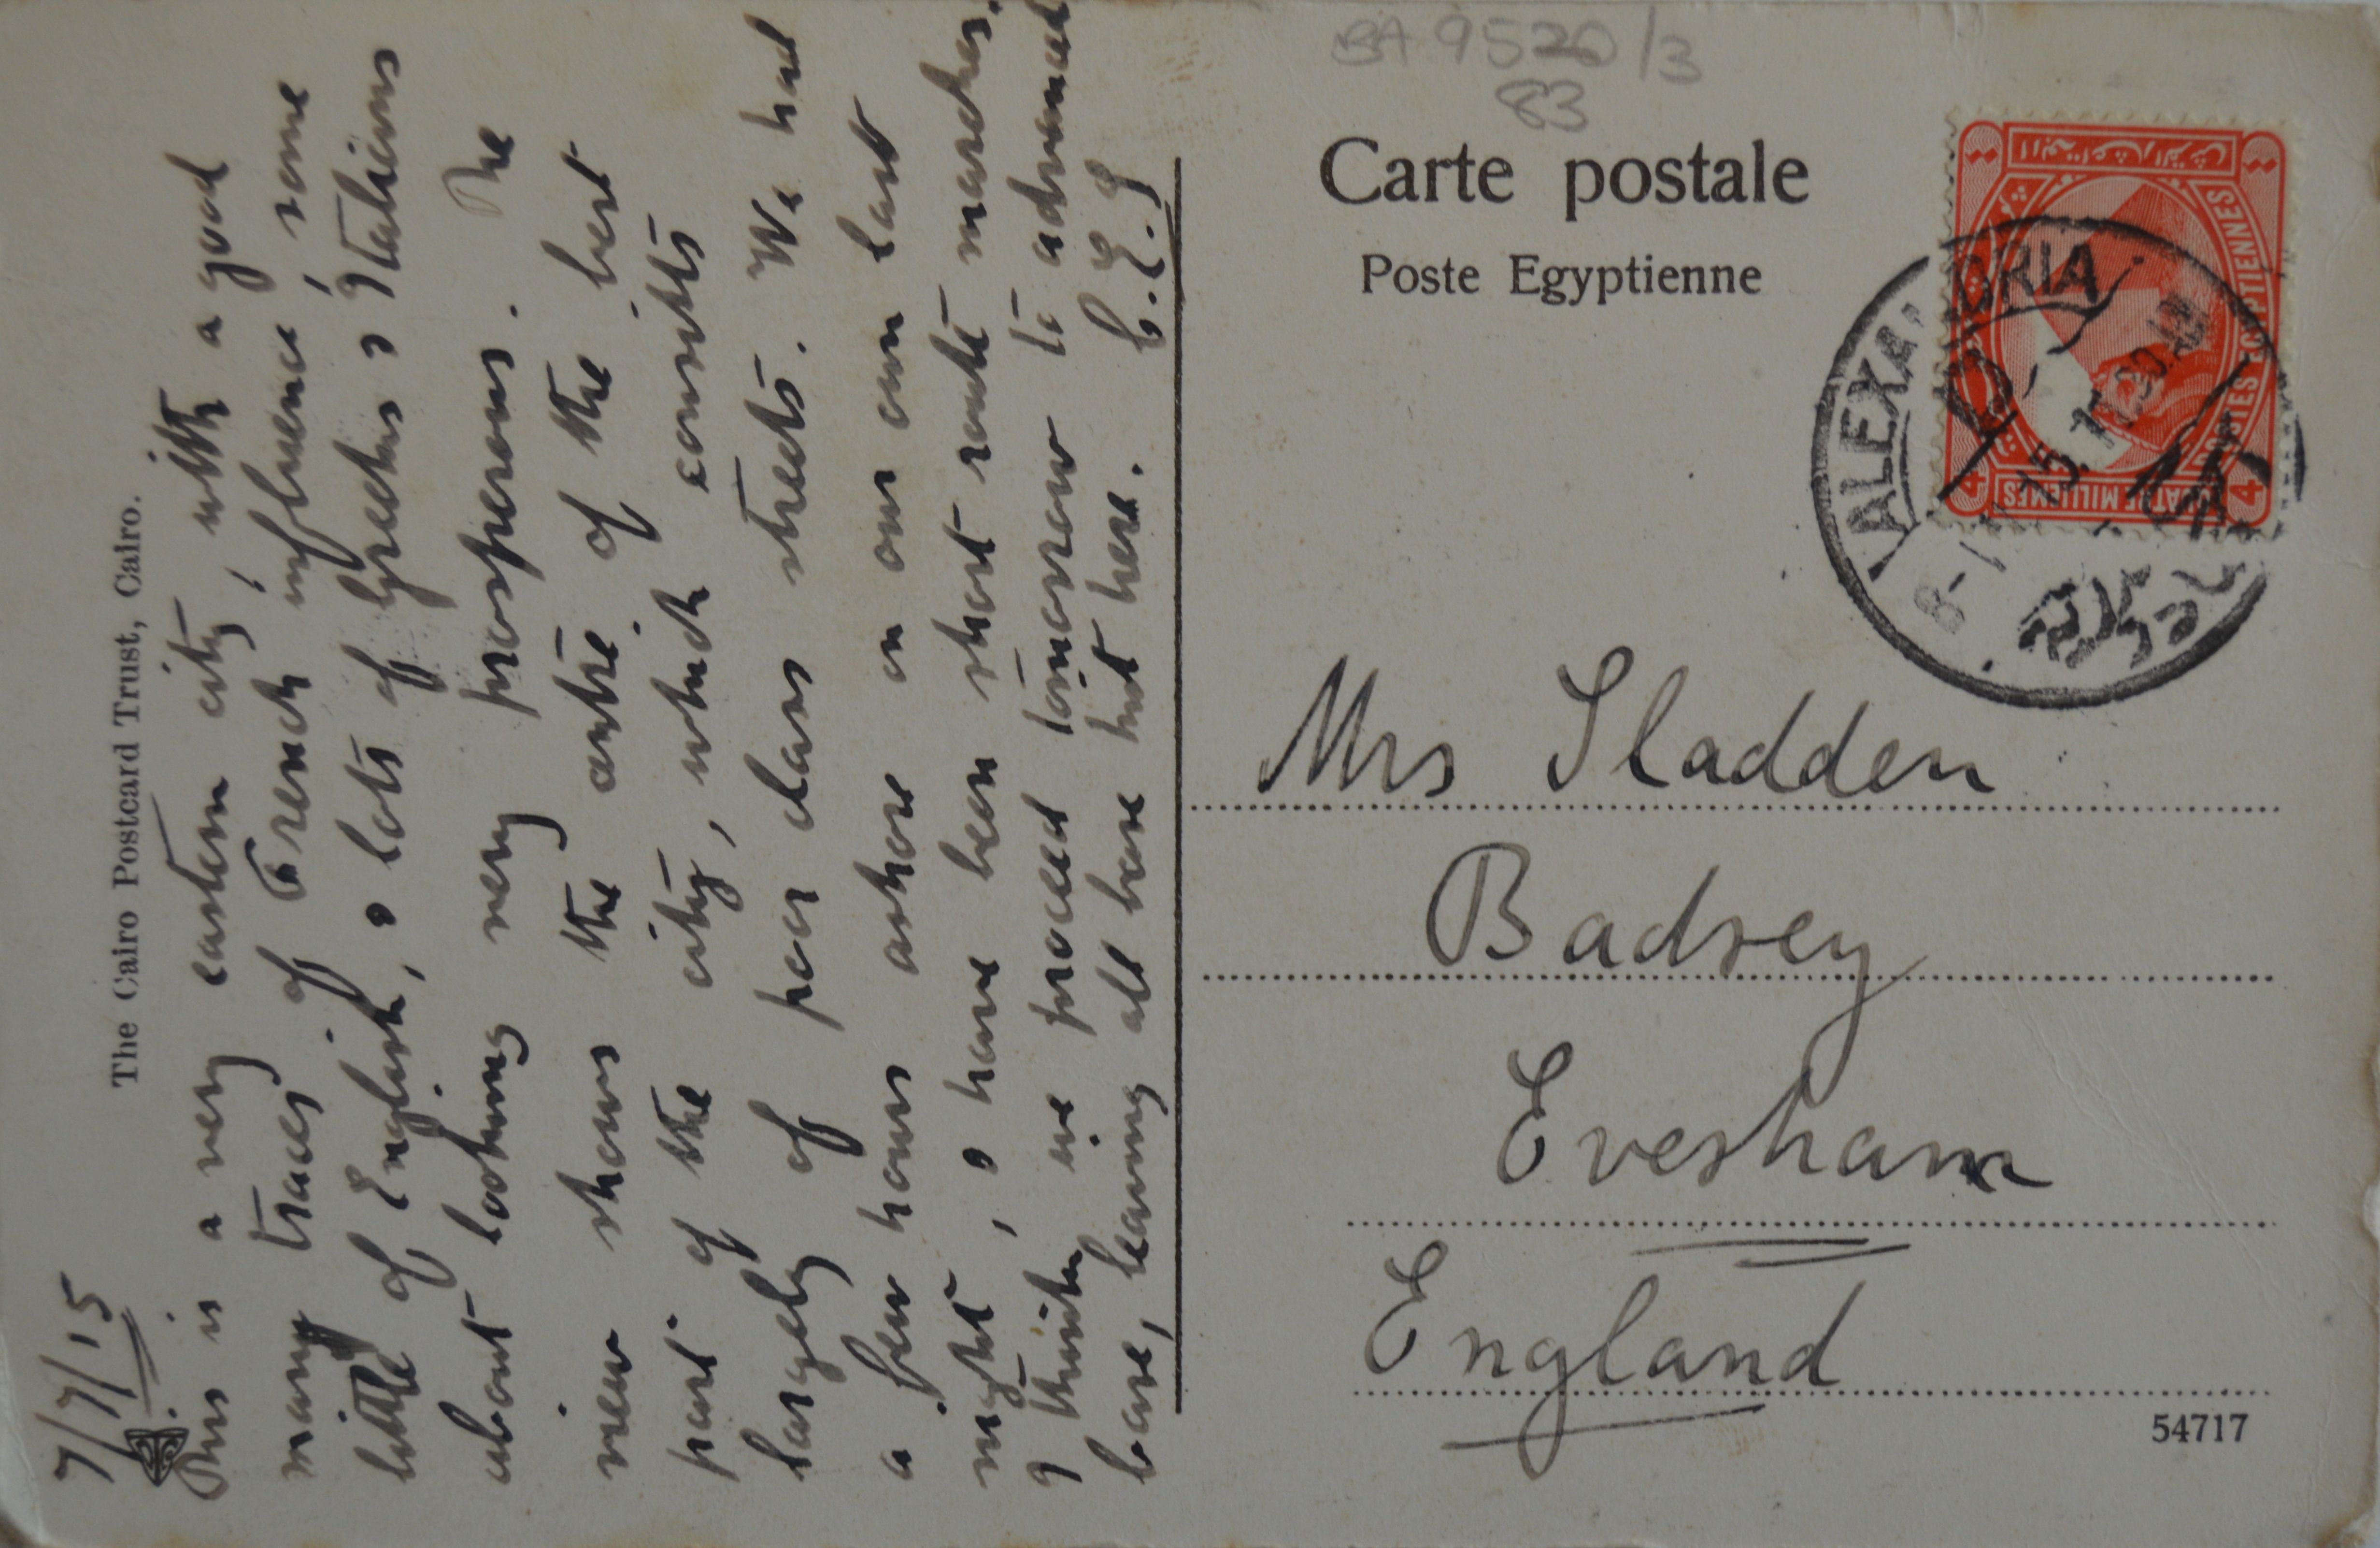 BA 9520/3
83
Carte postale
Poste Egyptienne
The Cairo Postcard Trust, Cairo.
7/7/15
This is a very eastern city, with a good
many traces of French influence, some
little of English, & lots of Greeks & Italians
about looking very prosperous. The
view shows the centre of the best
part of the city, which consists
largely of poor class streets. We had
a few hours ashore on our own last
night, & have been short route marches.
I think we proceed tomorrow to advanced
base, leaving all base kit here. C.E.S
ALEXANDRIA
15
POSTES EGYPTIENNES
QUATRE MILLIEMES
4
4
Mrs Sladden
Badsey
Evesham
England
54717